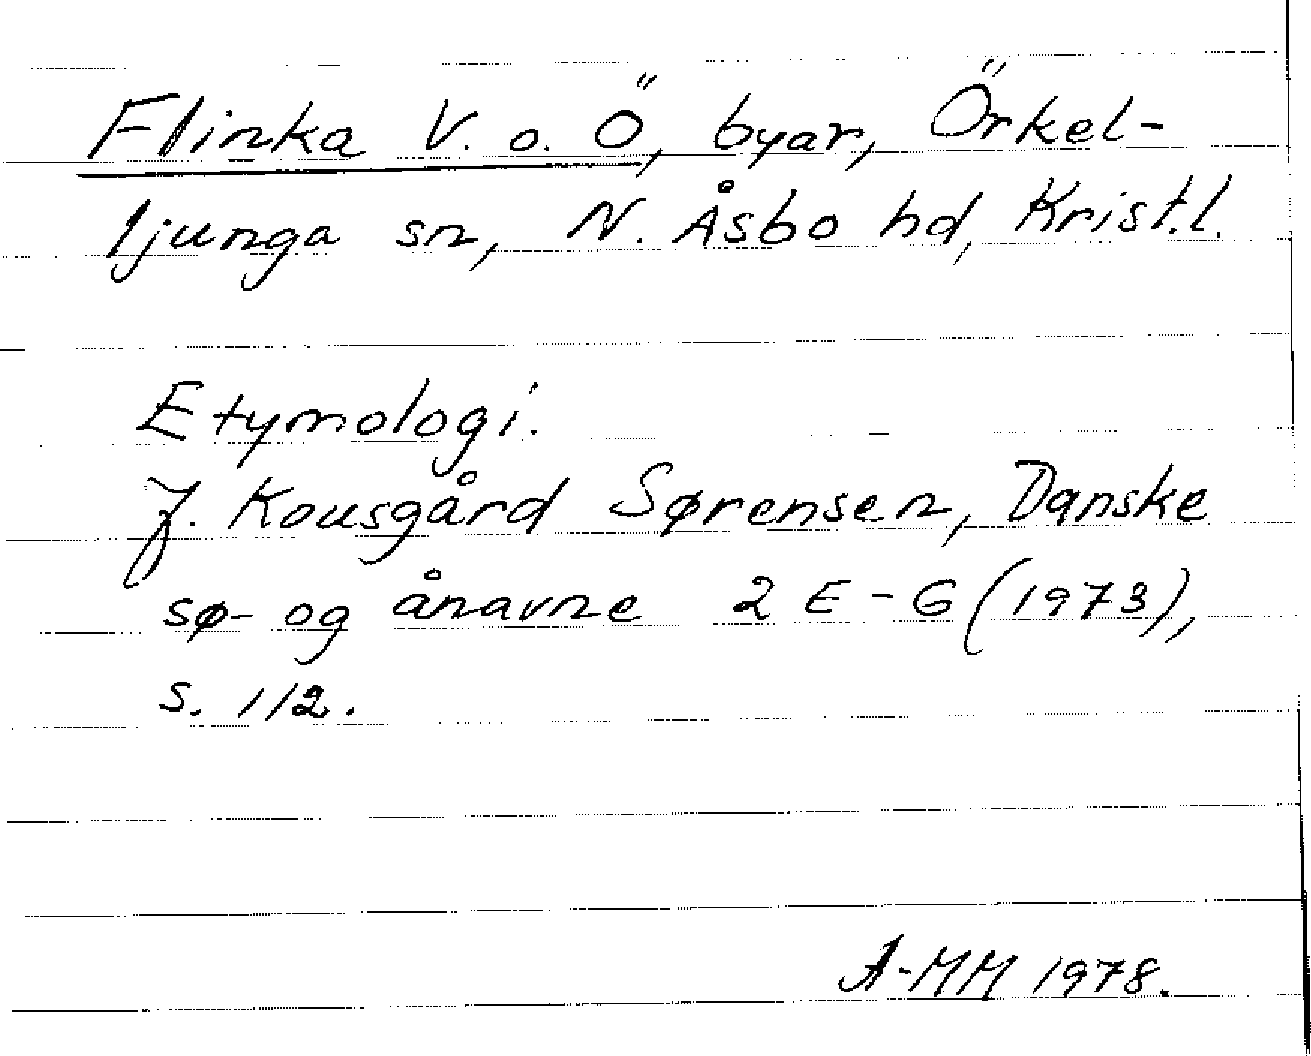 Flinka V. o. Ö, byar, Örkel-
ljunga sn, N. Åsbo hd, Krist.l.
Etymologi.
J. Kousgård Sørensen, Danske
sø- og ånavne 2 E-G (1973),
s. 112.
A-MM 1978.